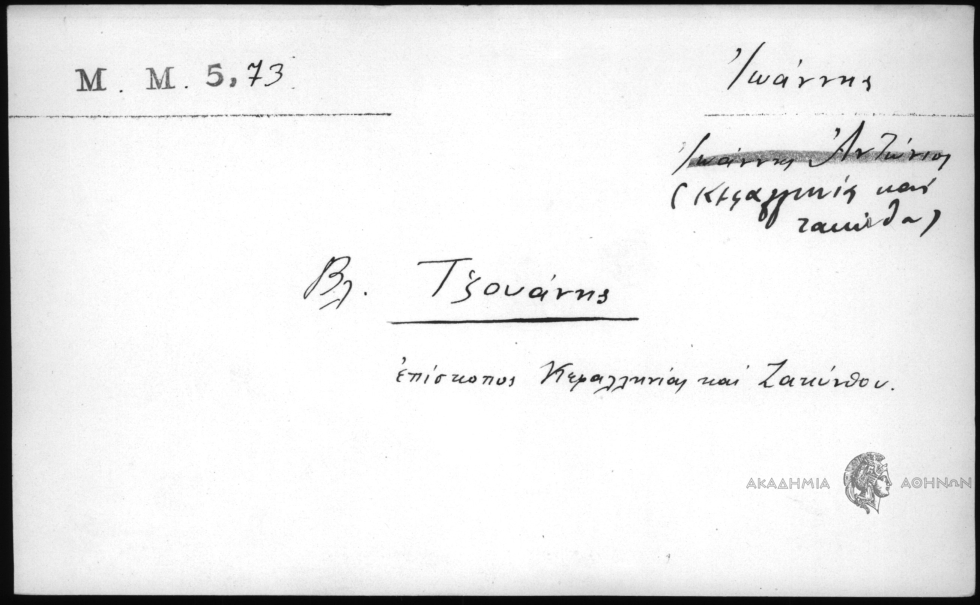 M. M. 5,73.
Ἰωάννης
Ἰωάννης Ἀντώνιος
(Κεφαλληνίας καὶ
Ζακύνθου)
Βλ. Τζουάνης
ἐπίσκοπος Κεφαλληνίας καὶ Ζακύνθου.
ΑΚΑΔΗΜΙΑ ΑΘΗΝΩΝ